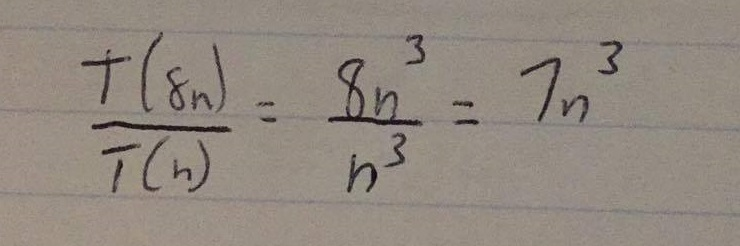 T(8n)/T(n) = 8n³/n³ = 7n³